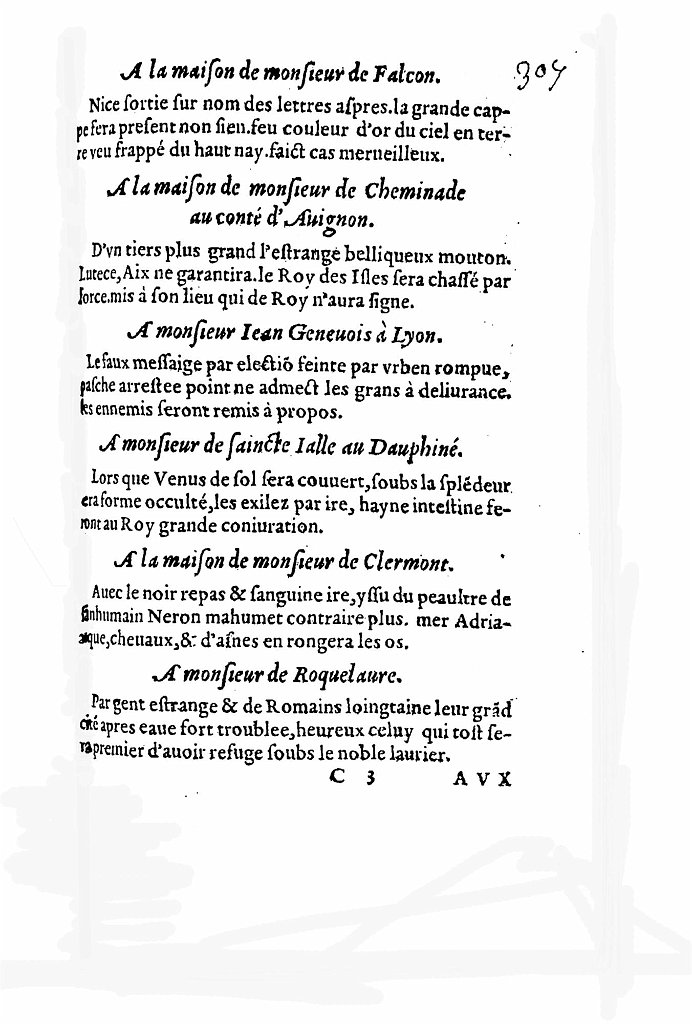 A la maiſon de monſieur de Falcon.
305
Nice ſortie ſur nom des lettres aſpres.la grande cap-
pe ſera preſent non ſien.feu couleur d'or du ciel en ter-
re veu frappé du haut nay.faict cas merueilleux.
A la maiſon de monſieur de Cheminade
au conté d'Auignon.
D'vn tiers plus grand l'eſtrange belliqueux mouton.
Lutece,Aix ne garantira.le Roy des Iſles ſera chaſſé par
force.mis à ſon lieu qui de Roy n'aura ſigne.
A monſieur Iean Geneuois à Lyon.
Le faux meſſaige par electiõ feinte par vrben rompue,
paſche arreſtee point ne admect les grans à deliurance.
les ennemis ſeront remis à propos.
A monſieur de ſaincte Ialle au Dauphiné.
Lors que Venus de ſol ſera couuert,ſoubs la ſplẽdeur
era forme occulté,les exilez par ire, hayne inteſtine fe-
ront au Roy grande coniuration.
A la maiſon de monſieur de Clermont.
Auec le noir repas & ſanguine ire,yſſu du peaultre de
ſinhumain Neron mahumet contraire plus. mer Adria-
tique,cheuaux,& d'aſnes en rongera les os.
A monſieur de Roquelaure.
Par gent eſtrange & de Romains loingtaine leur grãd
cité apres eaue fort troublee,heureux celuy qui toſt ſe-
ra premier d'auoir refuge ſoubs le noble laurier.
C 3 AVX